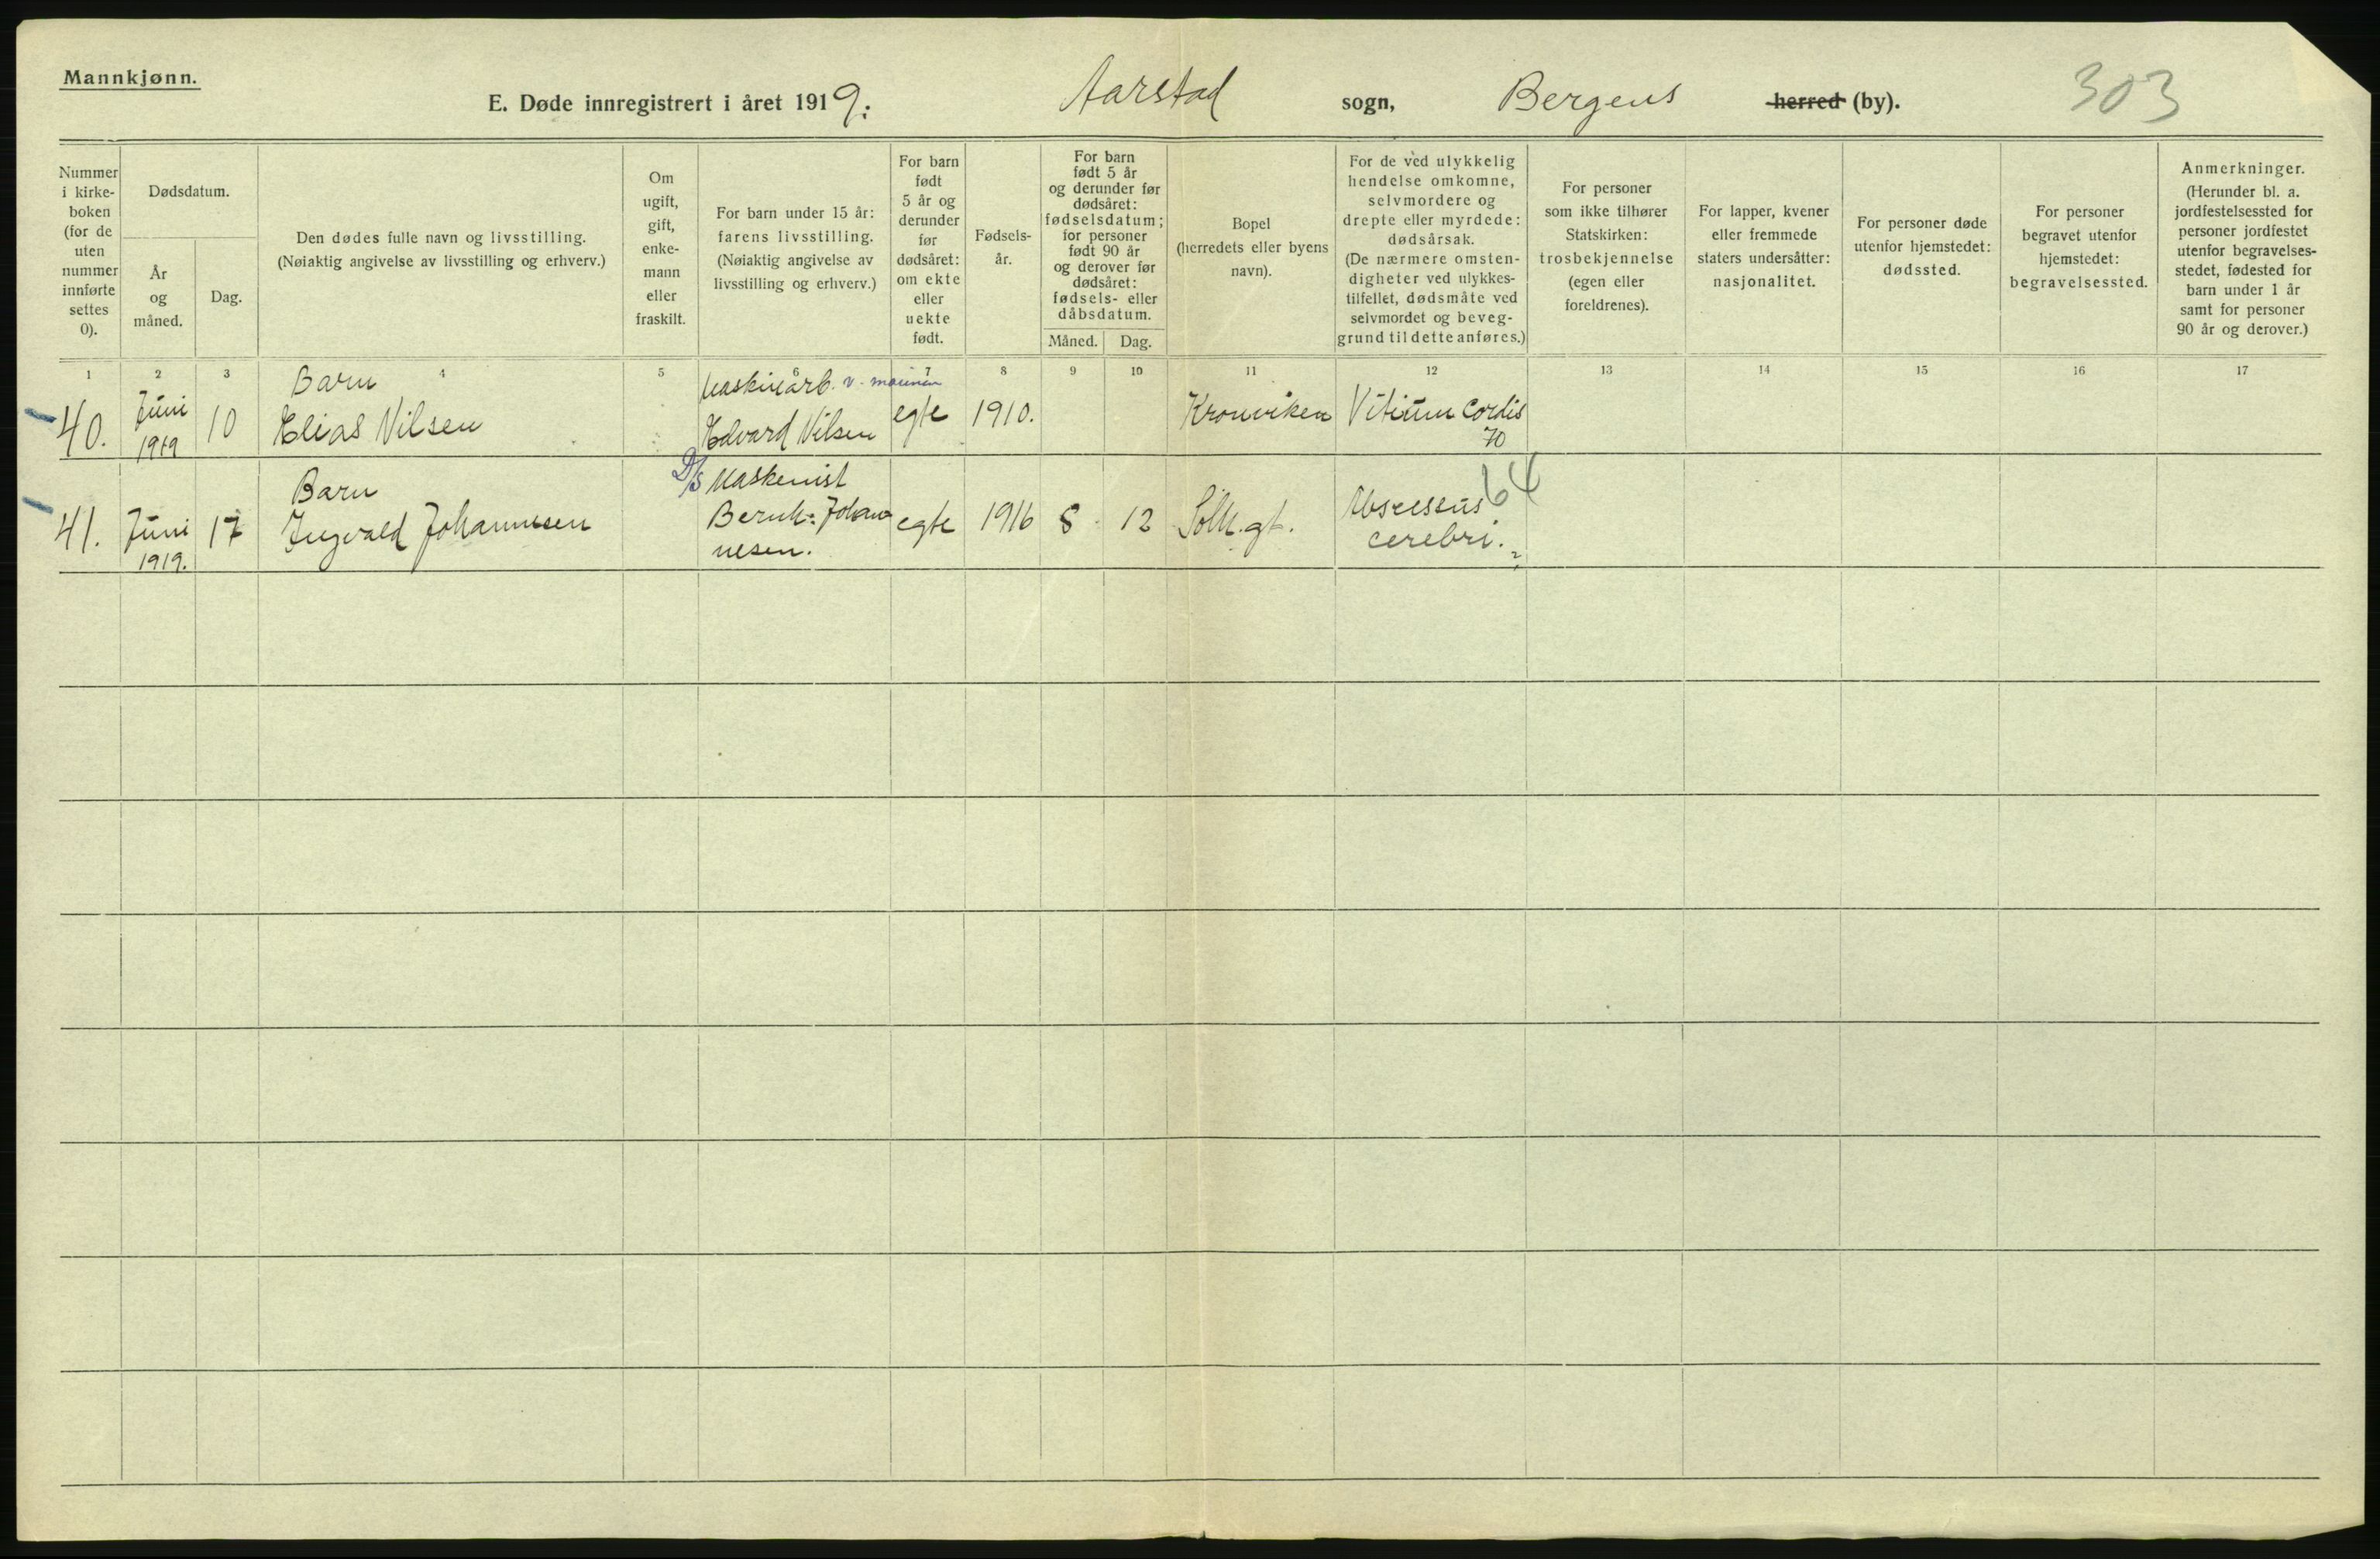 Mannkjønn.
E. Døde innregistrert i året 1919. Aarstad sogn, Bergens herred (by). 303
Nummer
i kirke-
boken
(for de
uten
nummer
innførte
settes
0).
Dødsdatum.
År
og
måned.
Dag.
Den dødes fulle navn og livsstilling.
(Nøiaktig angivelse av livsstilling og erhverv.)
Om
ugift,
gift,
enke-
mann
eller
fraskilt.
For barn under 15 år:
farens livsstilling.
(Nøiaktig angivelse av
livsstilling og erhverv.)
For barn
født
5 år og
derunder
før
dødsåret:
om ekte
eller
uekte
født.
Fødsels-
år.
For barn
født 5 år
og derunder før
dødsåret:
fødselsdatum;
for personer
født 90 år
og derover før
dødsåret:
fødsels- eller
dåbsdatum.
Måned. Dag.
Bopel
(herredets eller byens
navn).
For de ved ulykkelig
hendelse omkomne,
selvmordere og
drepte eller myrdede:
dødsårsak.
(De nærmere omsten-
digheter ved ulykkes-
tilfellet, dødsmåte ved
selvmordet og beveg-
grund til dette anføres.)
For personer
som ikke tilhører
Statskirken:
trosbekjennelse
(egen eller
foreldrenes).
For lapper, kvener
eller fremmede
staters undersåtter:
nasjonalitet.
For personer døde
utenfor hjemstedet:
dødssted.
For personer
begravet utenfor
hjemstedet:
begravelsessted.
Anmerkninger.
(Herunder bl. a.
jordfestelsessted for
personer jordfestet
utenfor begravelses-
stedet, fødested for
barn under 1 år
samt for personer
90 år og derover.)
1 2 3 4 5 6 7 8 9 10 11 12 13 14 15 16 17
40.
Juni
1919
10
Barn
Elias Nilsen
Maskinarb. v. marinen
Edvard Nilsen
egte
1910.
Kronviken
Vitium Cordis
70
41.
Juni
1919.
17
Barn
Ingvald Johannesen
D/S Maskenist
Bernh: Johan
nesen.
egte
1916
8
12
Solh.gt.
Abscessus 64
cerebri.